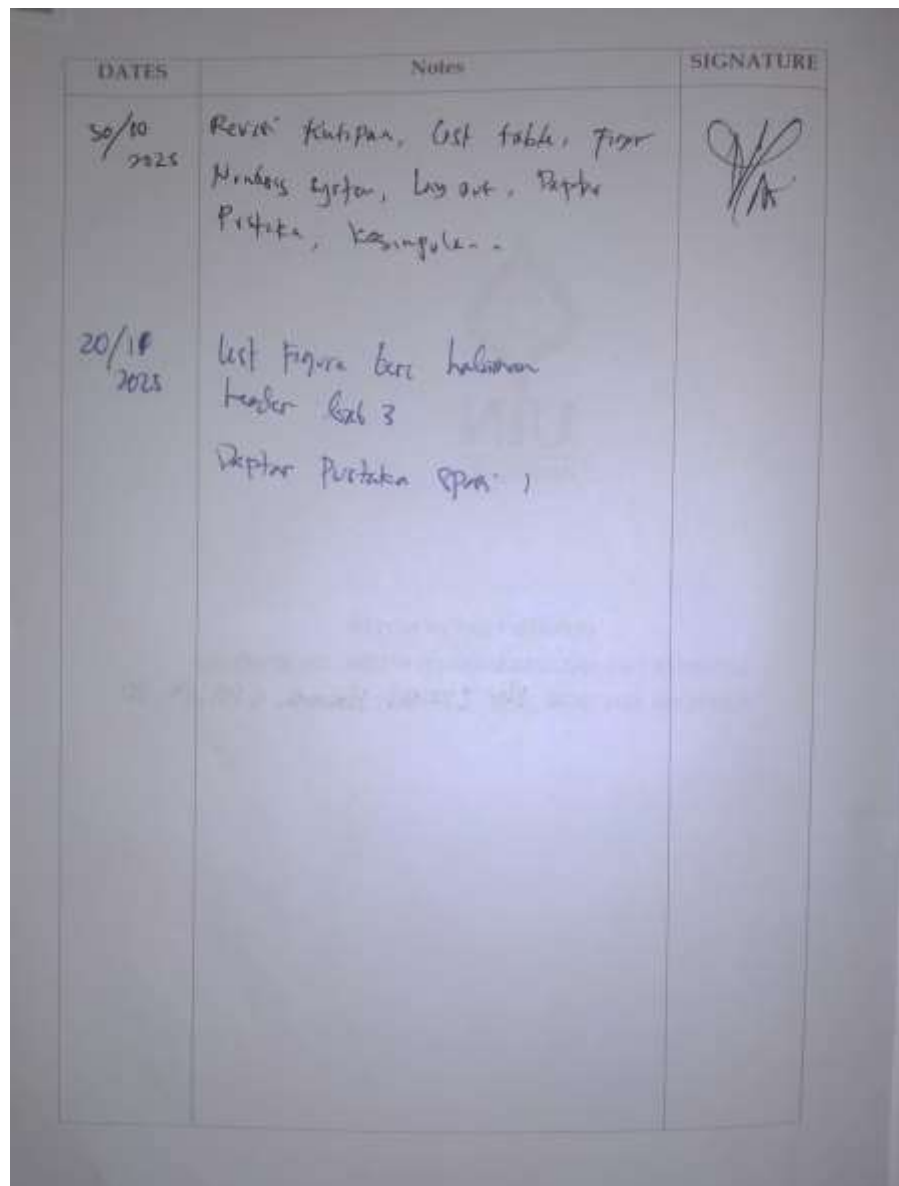 DATES Notes SIGNATURE
30/10 2025 Revisi Kutipan, List table, Figur
Numbers system, Lay out, Daptar
Pustaka, Kesimpula..
20/11 2025 List Figura beri halaman
header bab 3
Daptar Pustaka spasi 1
UIN